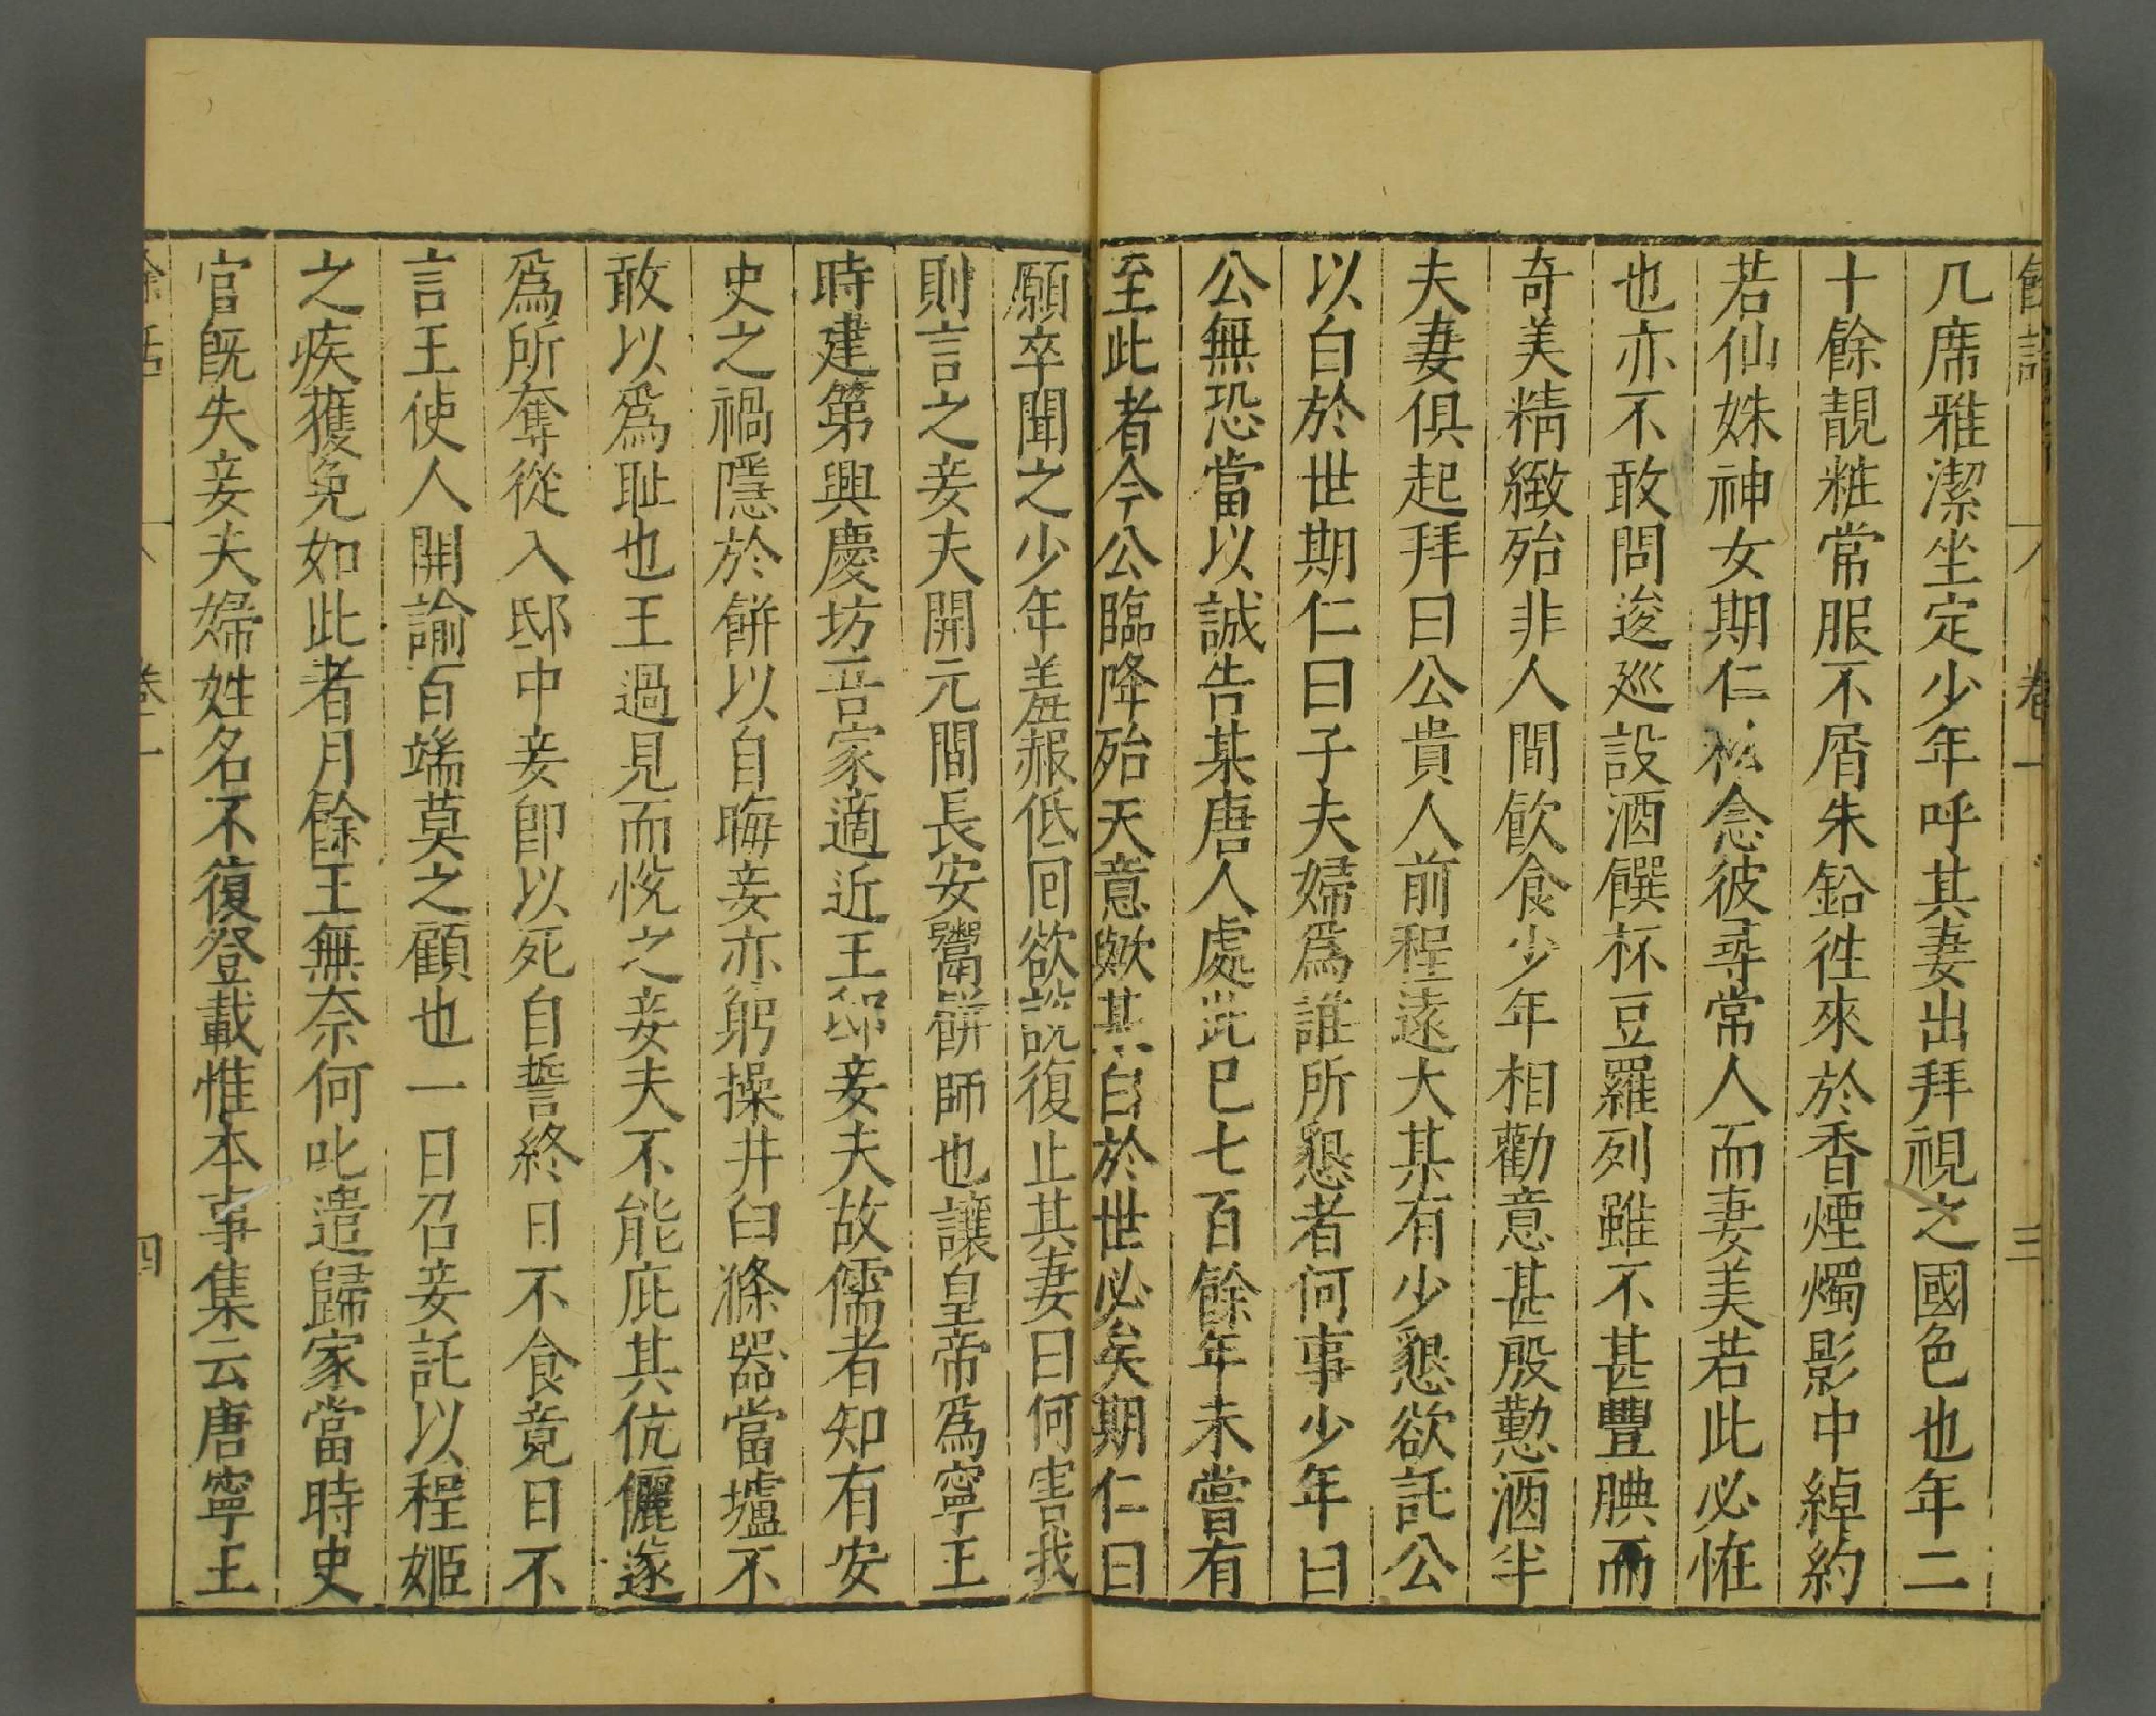 卷一 三
几席雅潔坐定少年呼其妻出拜視之國色也年二
十餘靚粧常服不屑朱鉛徃來於香煙燭影中綽約
若仙姝神女期仁私念彼尋常人而妻美若此必恠
也亦不敢問逡廵設酒饌杯豆羅列雖不甚豐腆而
奇美精緻殆非人間飲食少年相勸意甚殷懃酒半
夫妻俱起拜曰公貴人前程遠大某有少懇欲託公
以白於世期仁曰子夫婦爲誰所懇者何事少年曰
公無恐當以誠告某唐人處此已七百餘年未嘗有
至此者今公臨降殆天意歟其白於世必矣期仁曰
願卒聞之少年羞赧低囘欲說復止其妻曰何害我
則言之妾夫開元間長安鬻餅師也讓皇帝爲寧王
時建第興慶坊吾家適近王邸妾夫故儒者知有安
史之禍隱於餅以自晦妾亦躬操井臼滌器當壚不
敢以爲耻也王過見而悅之妾夫不能庇其伉儷遂
爲所奪從入邸中妾卽以死自誓終日不食竟日不
言王使人開諭百端莫之顧也一日召妾託以程姬
之疾獲免如此者月餘王無奈何叱遣歸家當時史
官旣失妾夫婦姓名不復登載惟本事集云唐寧王
四